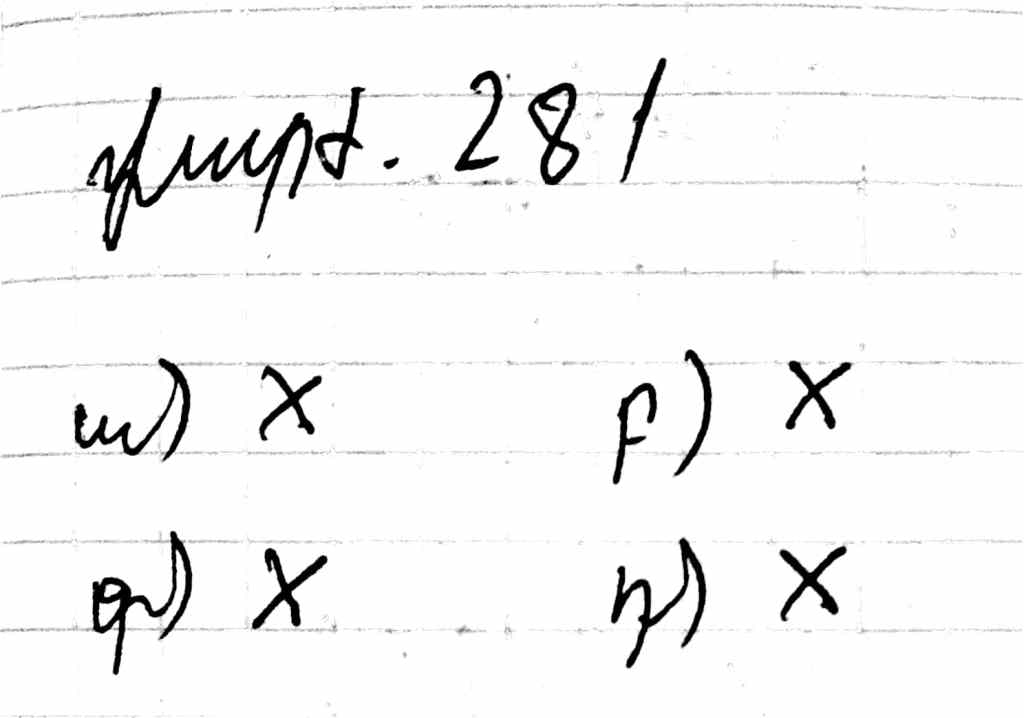 վարժ. 281
ա) X բ) X
գ) X դ) X